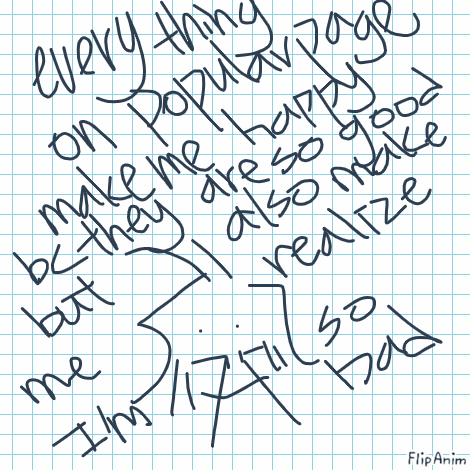 everything
on popular page
make me happy
bc they are so good
but also make
me realize
I'm so
bad
FlipAnim